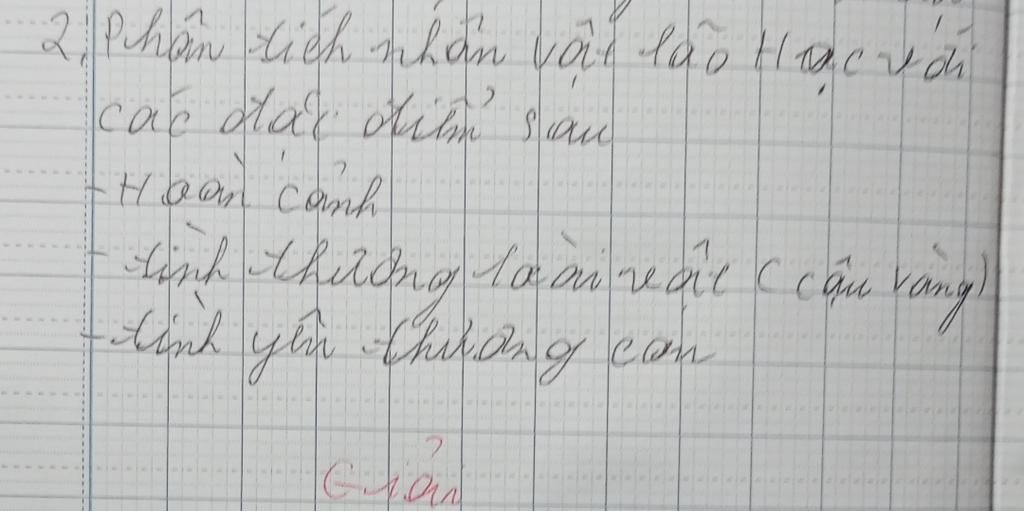 2, Phân tích nhân vật lão Hạc với
các đặc điểm sau
- Hoàn cảnh
- tình thương loài vật (cậu vàng)
- tình yêu thương con
Giản